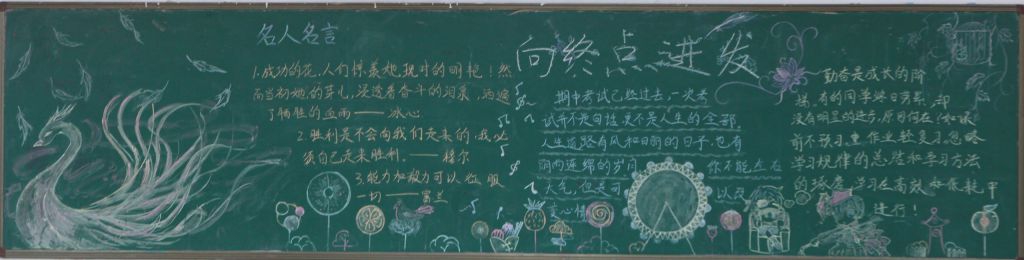 名人名言
1.成功的花,人们惊羡她现时的明艳!然
而当初她的芽儿,浸透着奋斗的泪泉,洒遍
了牺牲的血雨——冰心
2.胜利是不会向我们走来的,我必
须自己走来胜利。——穆尔
3.能力加毅力可以征服
一切——富兰
向终点进发
期中考试已经过去,一次考
试并不是
不是人生的全部,
人生道路有风和日丽的日子,也有
阴雨连绵的岁月
你不能左右
天气,但是可
以改
变心情
勤奋是成长的阶
梯,有的同学终日劳累,却
没有明显的进步,原因何在?如课
前不预习,重作业轻复习,忽略
学习规律的总结和学习方法
的
学习在高效和
中
进行!